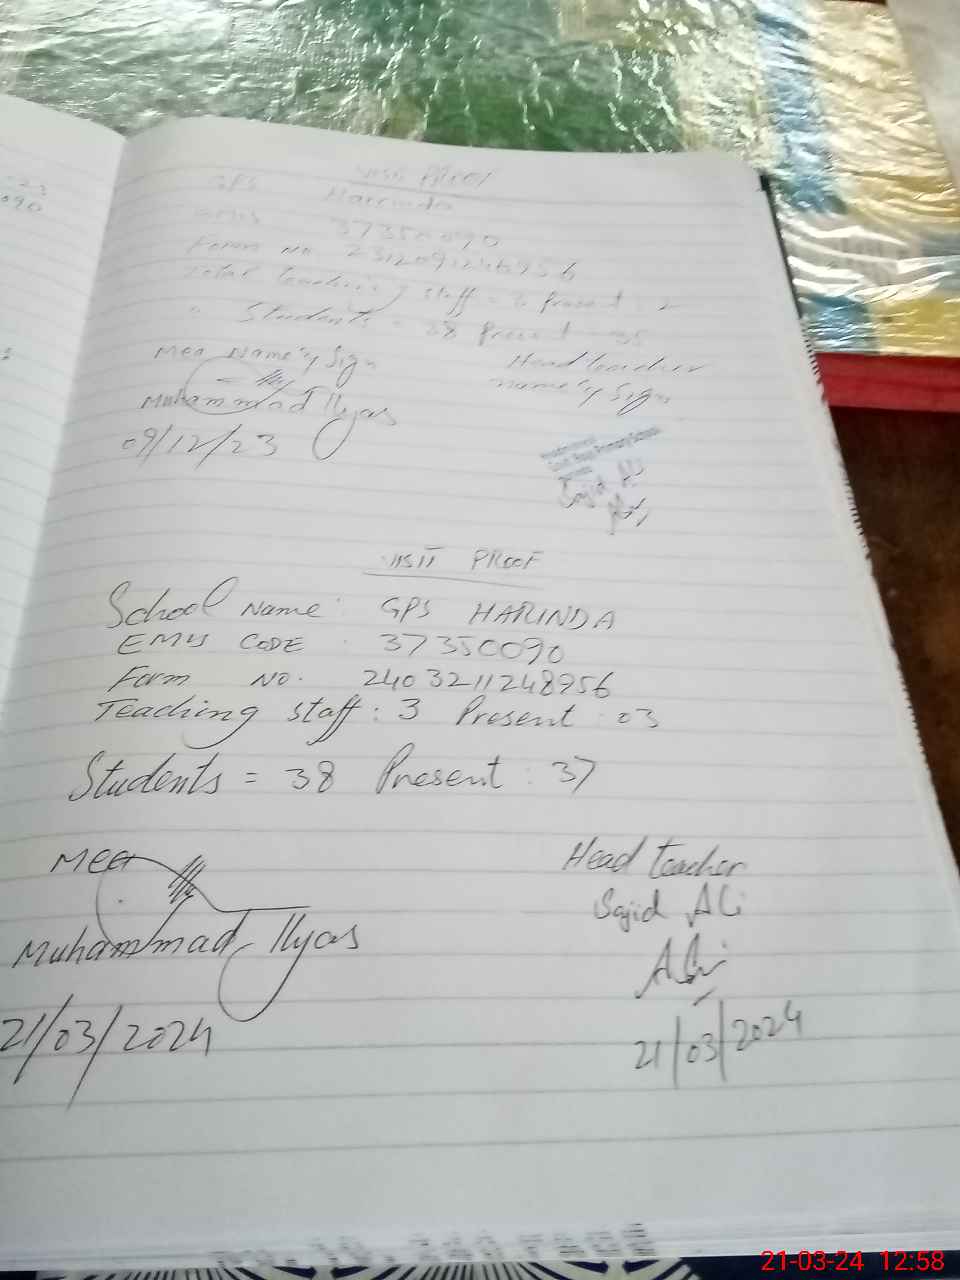 23
090
Visit Proof
GPS Harrinda
EMIS 37350090
Form No. 2312091246956
Total teaching staff = 2 Present : 2
" Students = 38 Present 35
Mea Name & Sign
Head teacher
name & Sign
Muhammad Ilyas
09/12/23
Govt. Boys Primary School
Sajid Ali
VISIT PROOF
School Name: GPS HARINDA
EMIS CODE : 37350090
Form NO. 2403211248956
Teaching staff : 3 Present : 03
Students = 38 Present : 37
Mea
Head teacher
Sajid Ali
Muhammad Ilyas
Ali
21/03/2024
21/03/2024
21-03-24 12:58